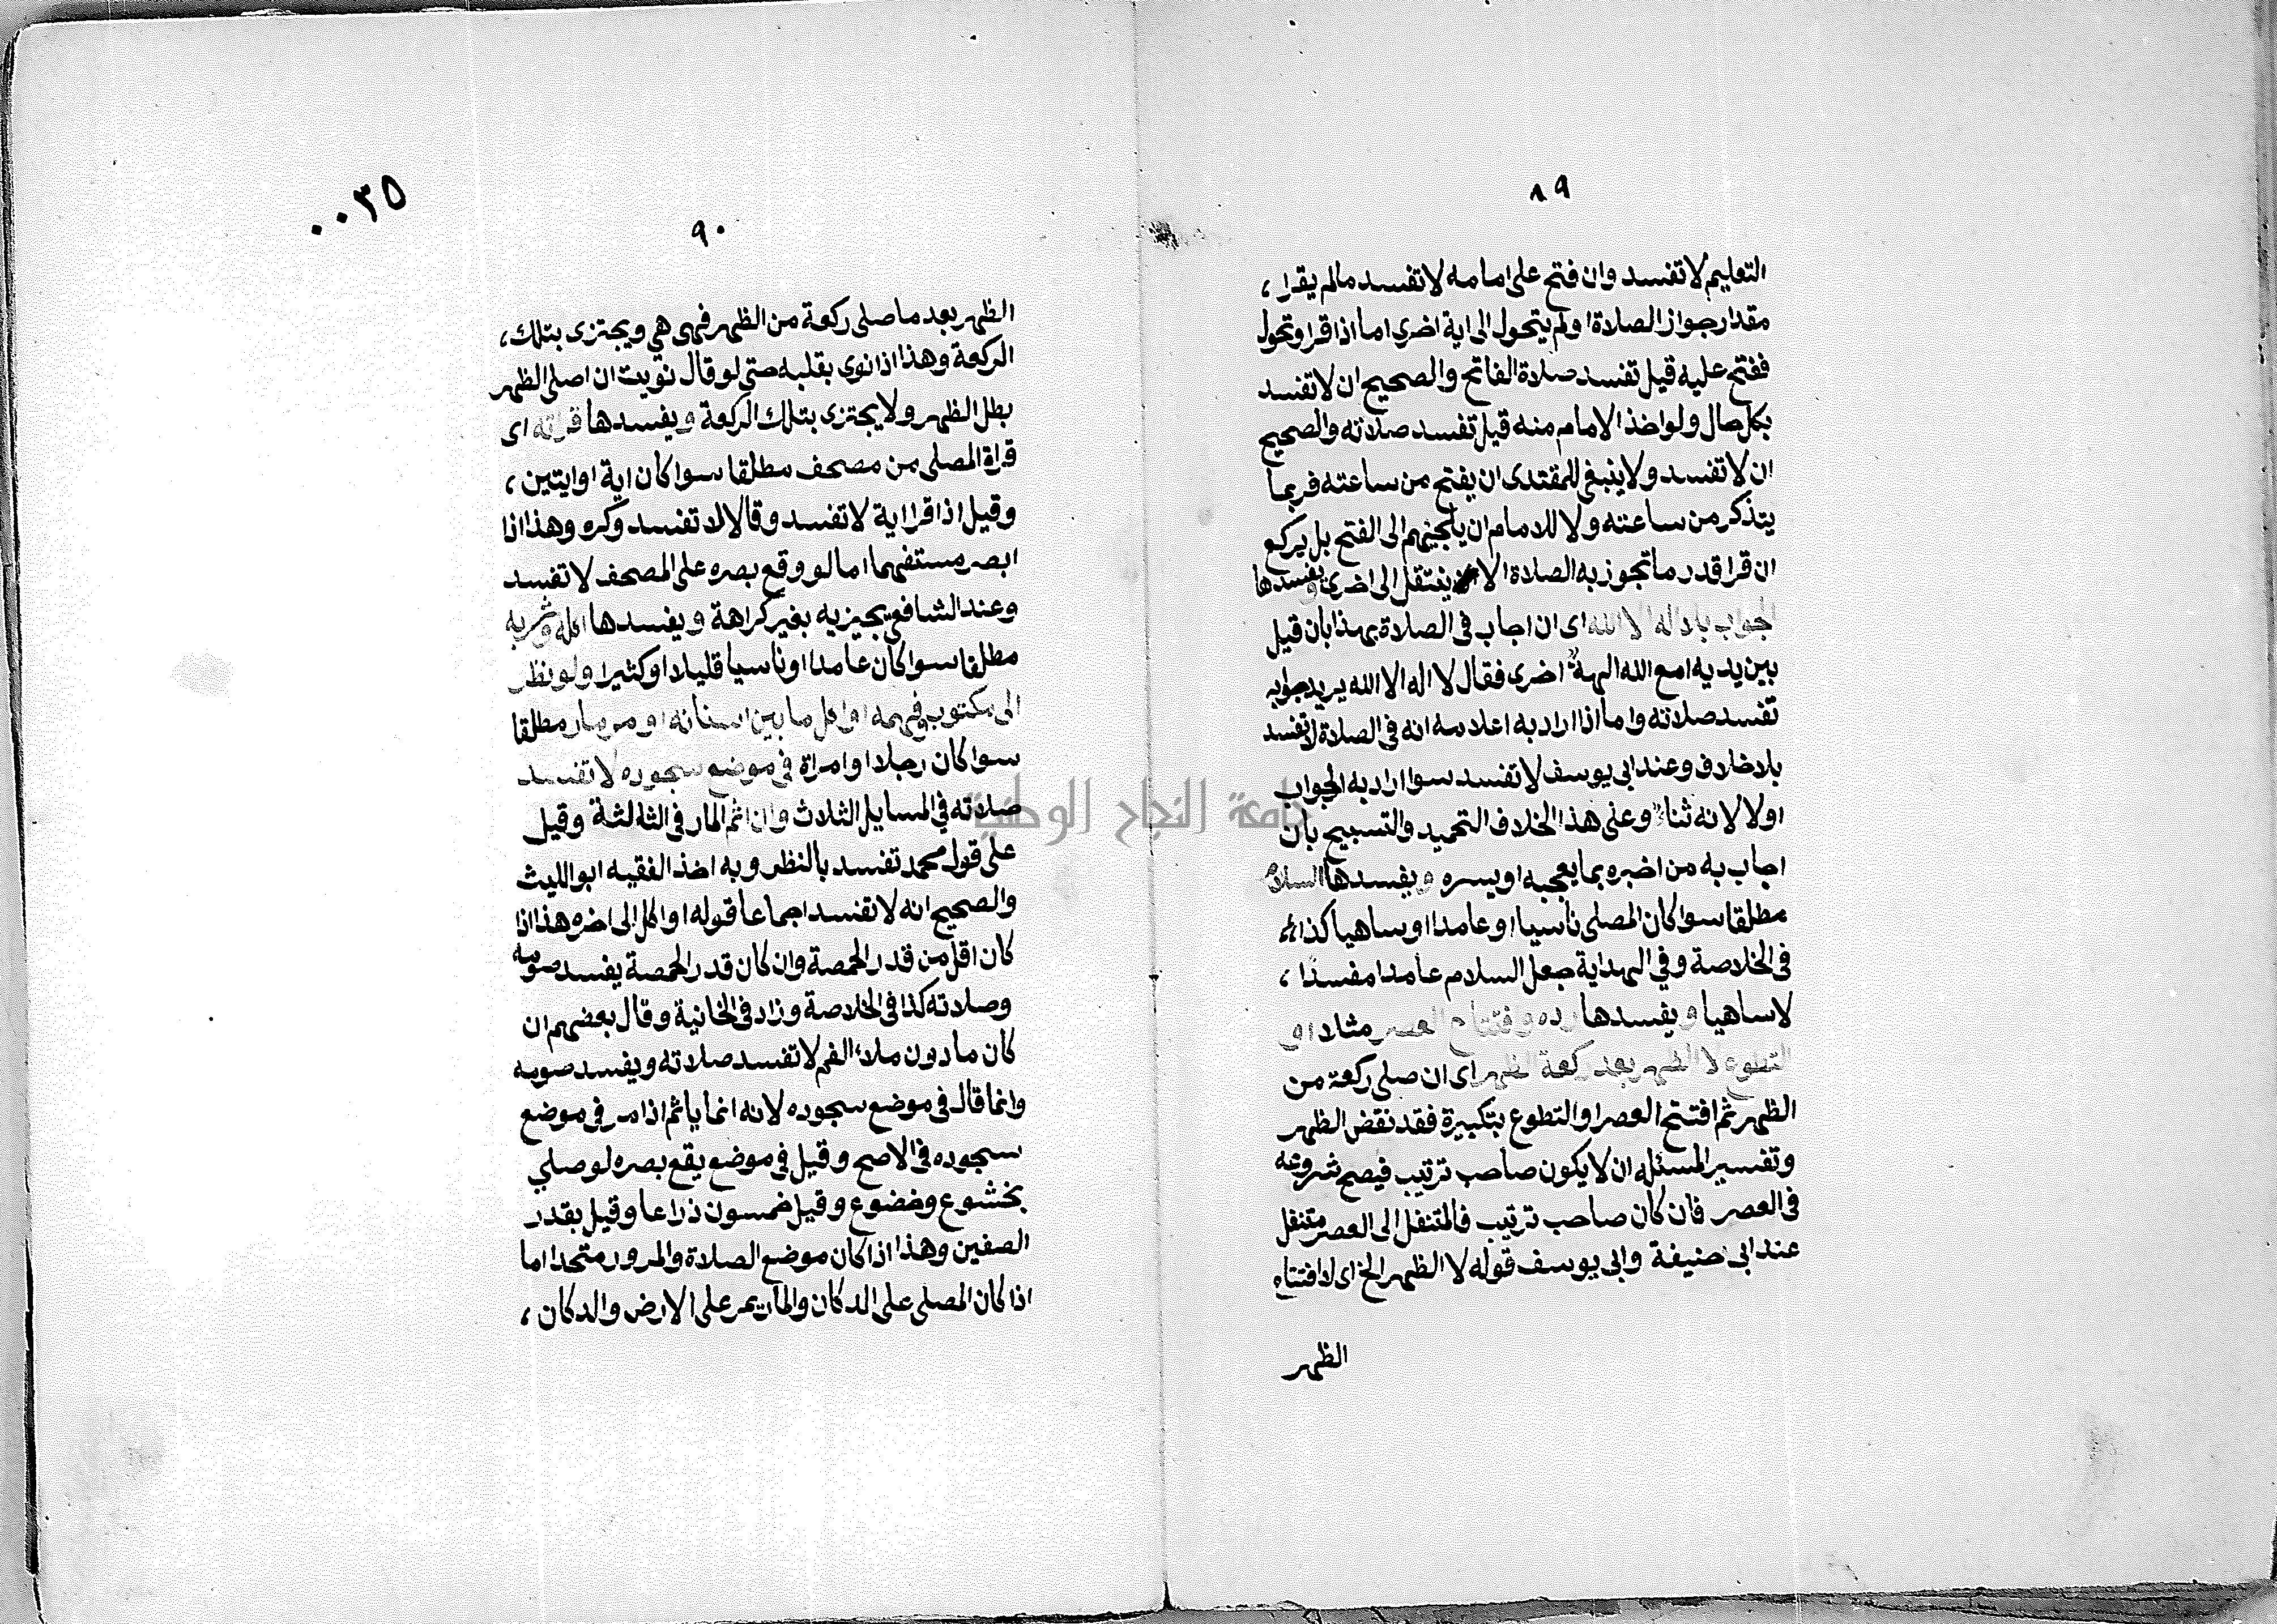 ٨٩
التعليم لا تفسد وان فتح على امامه لا تفسد مالم يقرا ،
مقدار جواز الصلاة او لم يتحول الى اية اخرى اما اذا قرا وتحول
ففتح عليه قيل تفسد صلاة الفاتح والصحيح ان لا تفسد
بكل حال ولو اخذ الامام منه قيل تفسد صلاته والصحيح
ان لا تفسد ولا ينبغي للمقتدى ان يفتح من ساعته فربما
يتذكر من ساعته ولا للامام ان يلجئهم الى الفتح بل يركع
ان قرا قدر ما تجوز به الصلاة الا ينتقل الى اخرى ويفسدها
الجواب بلا اله الا الله اى ان اجاب فى الصلاة بهذا بان قيل
بين يديه امع الله الهة اخرى فقال لا اله الا الله يريد جوابه
تفسد صلاته واما اذا اراد به اعلامه انه فى الصلاة لا تفسد
بلا خلاف وعند ابى يوسف لا تفسد سوا اراد به الجواب
اولا لانه ثناء وعلى هذا الخلاف التحميد والتسبيح بان
اجاب به من اخبره بما يعجبه او يسره ويفسدها السلام
مطلقا سوا كان المصلى ناسيا او عامدا او ساهيا كذا
فى الخلاصة وفي الهداية جعل السلام عامدا مفسدا ،
لا ساهيا ويفسدها رده وافتتاح العصر مثلا او
التطوع لا الظهر بعد ركعة الظهر اى ان صلى ركعة من
الظهر ثم افتتح العصر او التطوع بتكبيرة فقد نقض الظهر
وتفسير المسئله ان لا يكون صاحب ترتيب فيصح شروعه
فى العصر فان كان صاحب ترتيب فالمتنفل الى العصر متنفل
عند ابى حنيفة وابى يوسف قوله لا الظهر الخ اى لا افتتاح
الظهر
٠٠٣٥
٩٠
الظهر بعد ما صلى ركعة من الظهر فهى هي ويجتزى بتلك ،
الركعة وهذا اذا نوى بقلبه حتى لو قال نويت ان اصلى الظهر
بطل الظهر ولا يجتزى بتلك الركعة ويفسدها قراته اى
قراة المصلى من مصحف مطلقا سوا كان اية او ايتين ،
وقيل اذا قرا اية لا تفسد وقالا لا تفسد وكره وهذا اذا
ابصر مستفهما اما لو وقع بصره على المصحف لا تفسد
وعند الشافعي يجيزيه بغير كراهة ويفسدها اكله وشربه
مطلقا سوا كان عامدا او ناسيا قليلا او كثيرا ولو نظر
الى مكتوب وفهمه او اكل ما بين اسنانه او مر مار مطلقا
سوا كان رجلا او امراة فى موضع سجوده لا تفسد
صلاته فى المسايل الثلاث وان اثم المار فى الثالثة وقيل
على قول محمد تفسد بالنظر وبه اخذ الفقيه ابو الليث
والصحيح انه لا تفسد اجماعا قوله او اكل الى اخره هذا اذا
كان اقل من قدر الحمصة وان كان قدر الحمصة يفسد صومه
وصلاته كذا فى الخلاصة وزاد فى الخانية وقال بعضهم ان
كان ما دون ملاء الفم لا تفسد صلاته ويفسد صومه
وانما قال فى موضع سجوده لانه انما ياثم اذا مر فى موضع
سجوده فى الاصح وقيل فى موضع يقع بصره لو صلي
بخشوع وخضوع وقيل خمسون ذراعا وقيل بقدر
الصفين وهذا اذا كان موضع الصلاة والمرور متحدا اما
اذا كان المصلى على الدكان والمار يمر على الارض والدكان ،
جامعة النجاح الوطنية